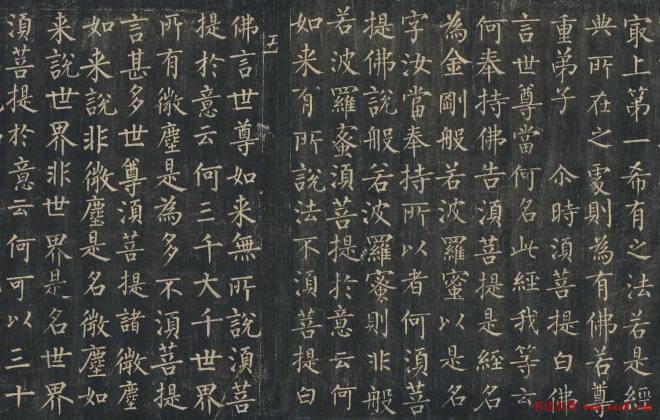 冣上第一希有之法若是經
典所在之處則為有佛若尊
重弟子 尒時須菩提白佛
言世尊當何名此經我等云
何奉持佛告須菩提是經名
為金剛般若波羅蜜以是名
字汝當奉持所以者何須菩
提佛說般若波羅蜜則非般
若波羅蜜須菩提於意云何
如来有所說法不須菩提白
五
佛言世尊如来無所說須菩
提於意云何三千大千世界
所有微塵是為多不須菩提
言甚多世尊須菩提諸微塵
如来說非微塵是名微塵如
来說世界非世界是名世界
須菩提於意云何可以三十